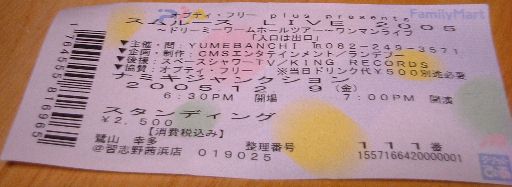 FamilyMart
オプティ・フリー plus presents
スムルース LIVE 2005
~ドリーミーワームホールツアー~ワンマンライブ
「入口は出口」
▼主催・問:YUMEBANCHI Tn082-249-3571
▼企画・制作:CMSエンタテインメント/ランデブー
▼後援:スペースシャワーTV/KING RECORDS
▼協賛:オプティ・フリー ※当日ドリンク代¥500別途必要
ナミキジャンクション
2005 12 9(金)
6:30PM 開場 7:00PM 開演
スタンディング
¥2,500
【消費税込み】
鷲山 幸多 整理番号 111番
@習志野茜浜店 019025 1557166420000001